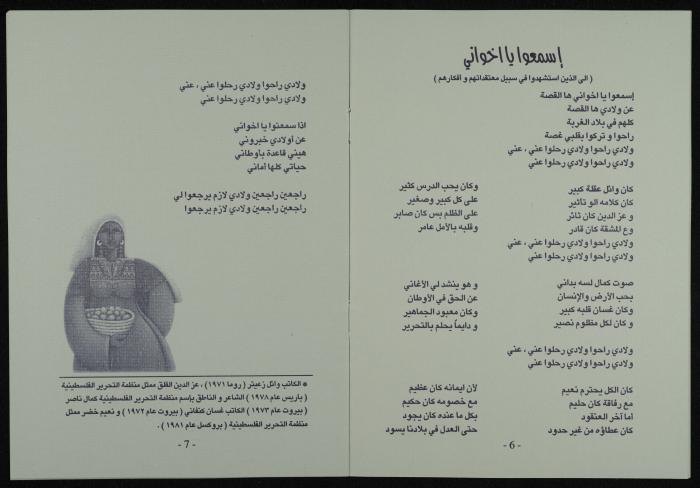 إسمعوا يا اخواني
( الى الذين استشهدوا في سبيل معتقداتهم و أفكارهم )
إسمعوا يا اخواني ها القصة
عن ولادي ها القصة
كلهم في بلاد الغربة
راحوا و تركوا بقلبي غصة
ولادي راحوا ولادي رحلوا عني ، عني
ولادي راحوا ولادي رحلوا عني
كان وائل عقله كبير وكان يحب الدرس كثير
كان كلامه الو تأثير على كل كبير وصغير
و عز الدين كان ثائر على الظلم بس كان صابر
وع المشقة كان قادر و قلبه بالأمل عامر
ولادي راحوا ولادي رحلوا عني ، عني
ولادي راحوا ولادي رحلوا عني
صوت كمال لسه بداني و هو ينشد لي الأغاني
بحب الأرض والإنسان عن الحق في الأوطان
وكان غسان قلبه كبير وكان معبود الجماهير
و كان لكل مظلوم نصير و دايماً يحلم بالتحرير
ولادي راحوا ولادي رحلوا عني ، عني
ولادي راحوا ولادي رحلوا عني
كان الكل يحترم نعيم لأن ايمانه كان عظيم
مع رفاقة كان حليم مع خصومه كان حكيم
أما آخر العنقود بكل ما عنده كان يجود
كان عطاؤه من غير حدود حتى العدل في بلادنا يسود
- 6 -
ولادي راحوا ولادي رحلوا عني ، عني
ولادي راحوا ولادي رحلوا عني
اذا سمعتوا يا اخواني
عن أولادي خبروني
هيني قاعدة بأوطاني
حياتي كلها أماني
راجعين راجعين ولادي لازم يرجعوا لي
راجعين راجعين ولادي لازم يرجعوا
* الكاتب وائل زعيتر ( روما ١٩٧١ ) ، عز الدين القلق ممثل منظمة التحرير الفلسطينية
( باريس عام ١٩٧٨ ) الشاعر و الناطق بإسم منظمة التحرير الفلسطينية كمال ناصر
( بيروت عام ١٩٧٣ ) الكاتب غسان كنفاني ( بيروت عام ١٩٧٢ ) و نعيم خضر ممثل
منظمة التحرير الفلسطينية ( بروكسل عام ١٩٨١ ) .
- 7 -